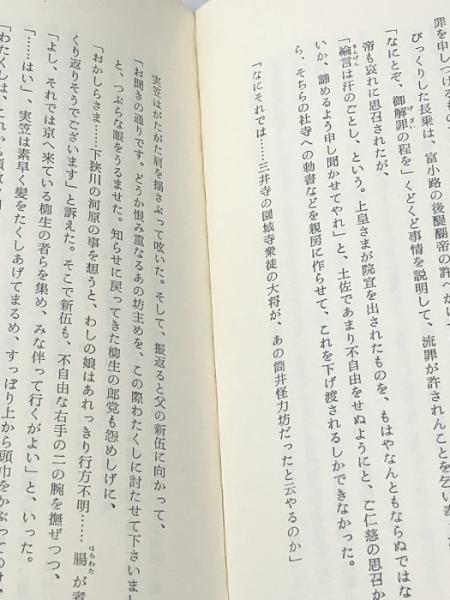 罪を申しつけるもの
びっくりした長乗は、富小路の後醍醐帝の許へかけ
「なにとぞ、御解罪の程を」くどくど事情を説明して、流罪が許されんことを乞い奉
げざい
帝も哀れに思召されたが、
「綸言は汗のごとし、という。上皇さまが院宣を出されたものを、もはやなんともならぬではな
りんげん
いか、諦めるよう申し聞かせてやれ」と、土佐であまり不自由をせぬようにと、ご仁慈の思召か
ら、そちらの社寺への勅書などを親房に作らせて、これを下げ渡されるしかできなかった。
「なにそれでは……三井寺の園城寺衆徒の大将が、あの筒井怪力坊だったと云やるのか」
実笠はがたがた肩を揺さぶって呟いた。そして、振返ると父の新伍に向かって、
「お聞きの通りです。どうか恨み重なるあの坊主めを、この際わたくしに討たせて下さいまし
と、つぶらな眼をうるませた。知らせに戻ってきた柳生の郎党も怨めしげに、
「おかしらさま……下狭川の河原の事を想うと、わしの娘はあれっきり行方不明……腸が煮
はらわた
くり返りそうでございます」と訴えた。そこで新伍も、不自由な右手の二の腕を撫ぜつつ、
「よし、それでは京へ来ている柳生の者らを集め、みな伴って行くがよい」と、いった。
「……はい」、実笠は素早く髪をたくしあげてまるめ、すっぽり上から頭巾をかぶって
「わたくしは、これから